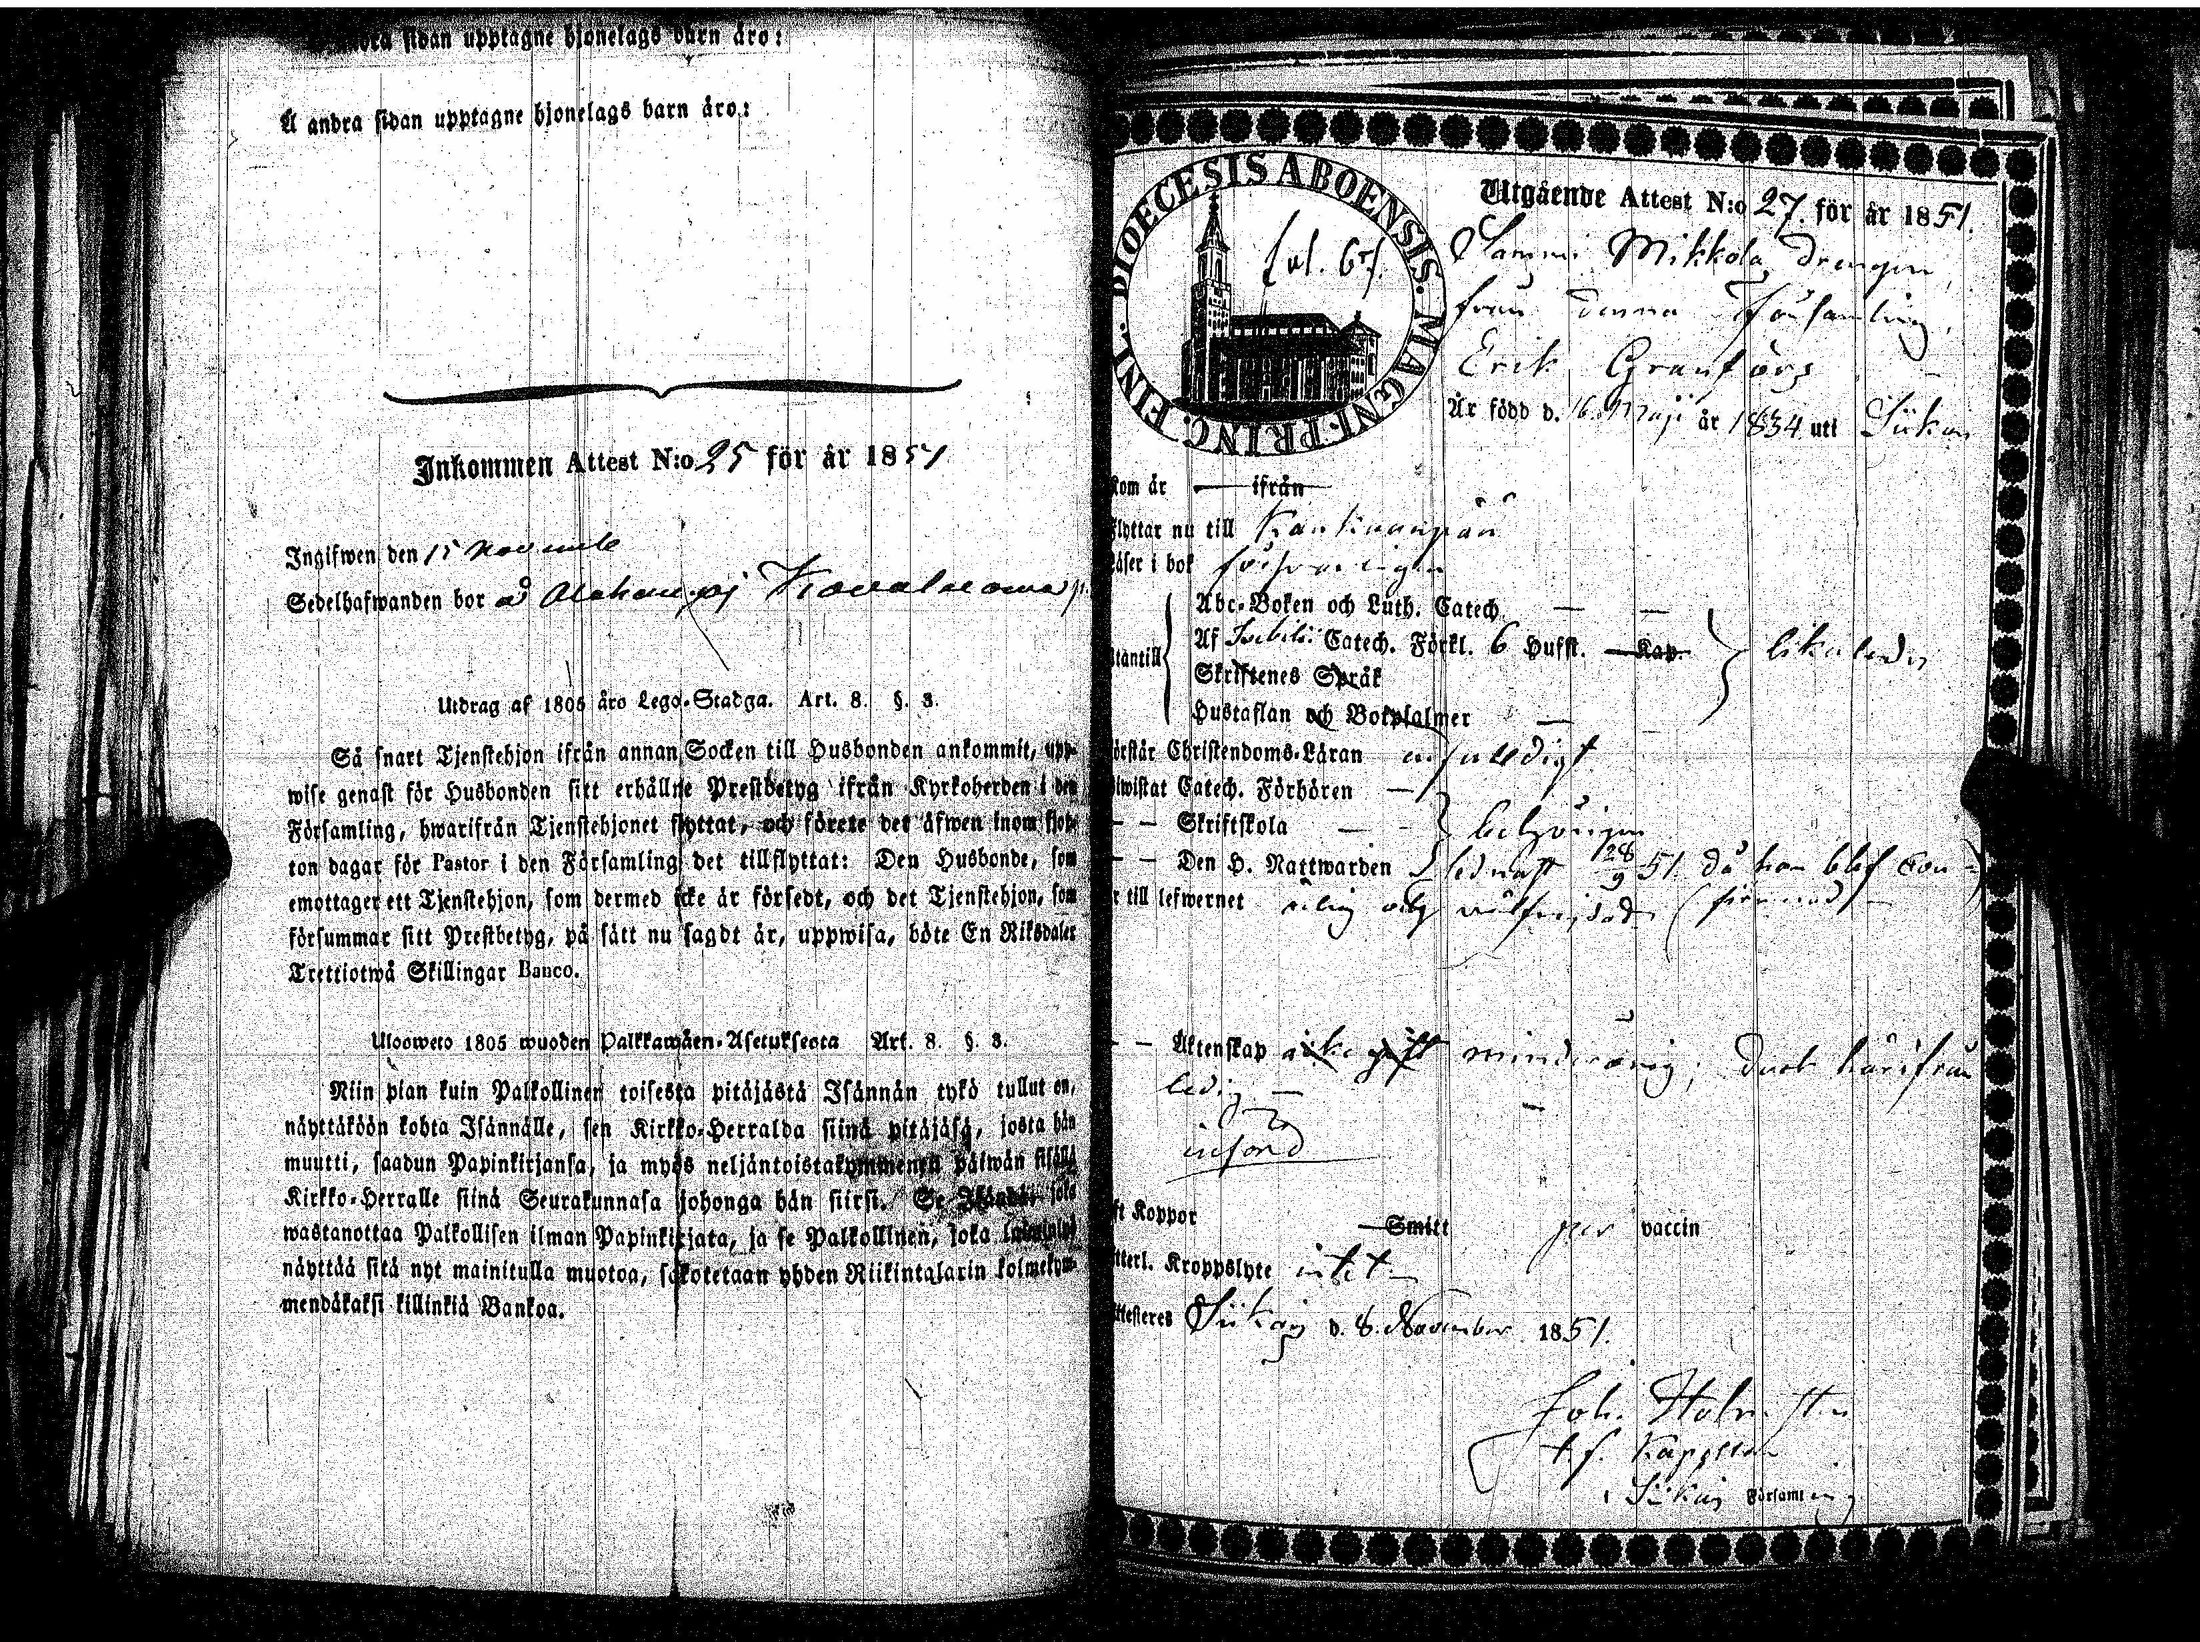 andra sidan upptagne hjonelags barn äro:
Å andra sidan upptagne hjonelags barn äro:
Inkommen Attest N:o 25 för år 1851
Ingifwen den 15 Novemb
Sedelhafwanden bor å
Utdrag af 1805 års Lego-Stadga. Art. 8. §. 3.
Så snart Tjenstehjon ifrån annan Socken till Husbonden ankommit, upp-
wise genast för Husbonden sitt erhållne Prestbetyg ifrån Kyrkoherden i den
Församling, hwarifrån Tjenstehjonet flyttat, och förete det äfwen inom fjor-
ton dagar för Pastor i den Församling det tillflyttat: Den Husbonde, som
emottager ett Tjenstehjon, som dermed icke är försedt, och det Tjenstehjon, som
försummar sitt Prestbetyg, på sätt nu sagdt är, uppwisa, böte En Riksdaler
Trettiotwå Skillingar Banco.
Ulosweto 1805 wuoden Palkkawäen-Asetuksesta Art. 8. §. 3.
Niin pian kuin Palkollinen toisesta pitäjästä Isännän tykö tullut on,
näyttäköön kohta Isännälle, sen Kirkko-Herralda siinä pitäjäsä, josta hän
muutti, saadun Papinkirjansa, ja myös neljäntoistakymmenen päiwän sisällä
Kirkko-Herralle siinä Seurakunnasa johonga hän siirsi. Se Isändä, joka
wastanottaa Palkollisen ilman Papinkirjata, ja se Palkollinen, joka
näyttää sitä nyt mainitulla muotoa, sakotetaan yhden Riikintalarin kolmekym-
mendäkaksi killinkiä Bankoa.
DIOECESIS ABOENSIS. MAGNI. PRINC. FINL.
fol. 65.
Utgående Attest N:o 27. för år 1851.
Mikkola Drengen
från denna Församling,
Erik Granfors
Är född d. 16 Maji år 1834 uti Siikais
kom år — ifrån
flyttar nu till Kankaanpää
läser i bok försvarligen
Abc-Boken och Luth. Catech. — —
utantill Af Svebilii Catech. Förkl. 6 Hufst. — Kap. likaledes
Skriftenes Språk
Hustaflan och Botpsalmer —
örstår Christendoms-Läran enfaldigt
biwistat Catech. Förhören —
— — Skriftskola — behörigen
— — Den H. Nattwarden sednast 28/9 51. då han blef con-
r till lefwernet ärlig och välfrejdad (firmerad
— — Äktenskap icke gift minderårig; dock härifrån
ledig —
införd
ft Koppor — Smitt per vaccin
tterl. Kroppslyte intet
ttesteres Siikais d. 8. November 1851.
Joh. Holmsten
t.f. Kapellan
i Siikais Församling